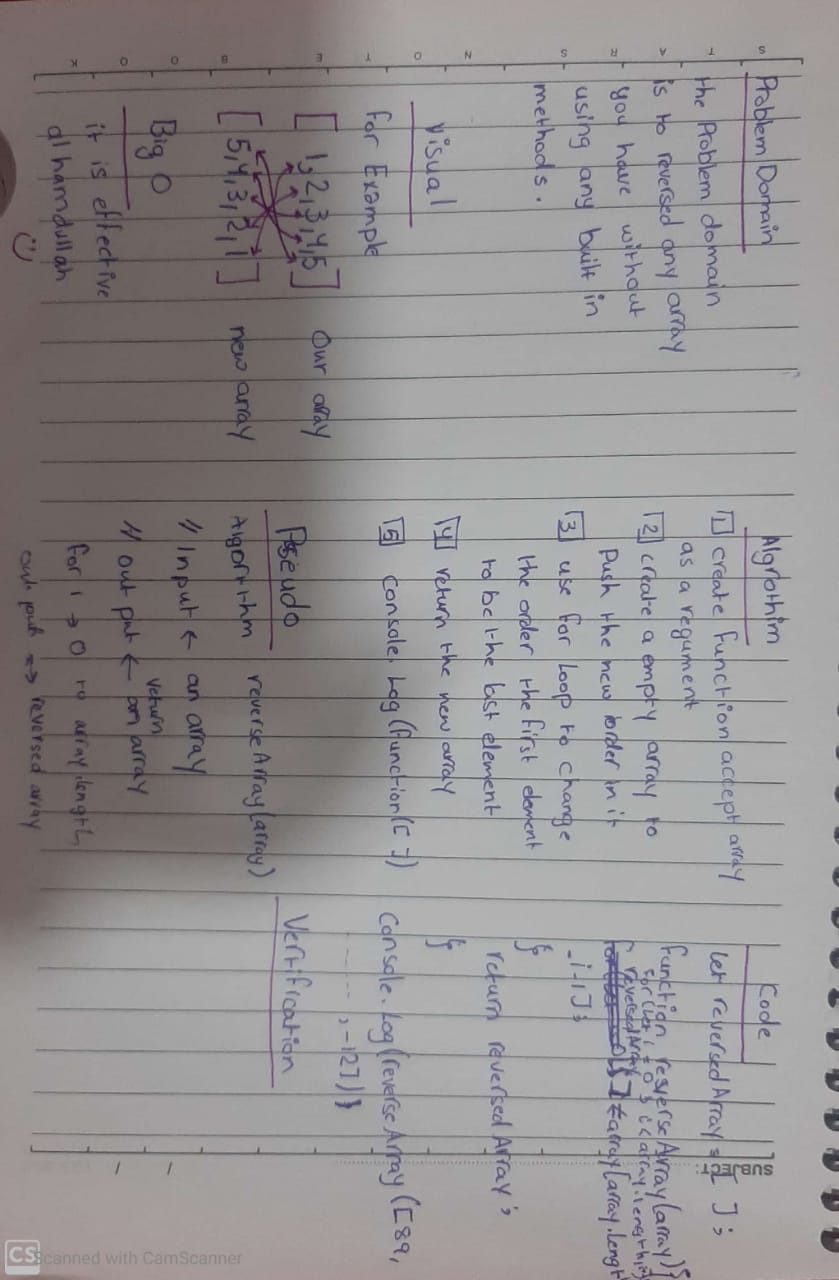 STARS NOTEBOOK
SUBJECT:
Problem Domain
the Problem domain
is to reversed any array
you have without
using any built in
methods.
Visual
for Example
[ 1,2,3,4,5 ] Our aray
[ 5,4,3,2,1 ] new array
Big O
it is effective
alhamdullah
Algrothim
1 create function accept array
as a regument
2 create a empty array to
Push the new order in it
3 use for loop to change
the order the first element
to be the last element
4 return the new array
5 console.log(function([ ])
Pseudo
Algorithm reverseArray(array)
// Input ← an array
// out put ← return an array
for i → 0 to array.length,
out put → reversed array
Code
let reversedArray = [ ];
function reserseArray(array){
for(let i = 0; i < array.length;i++){
reversedArray[i] = array[array.lengt
-i-1];
}
return reversedArray;
}
Console.log(reverseArray([89,
------, -12]))
Vertification
CS Scanned with CamScanner